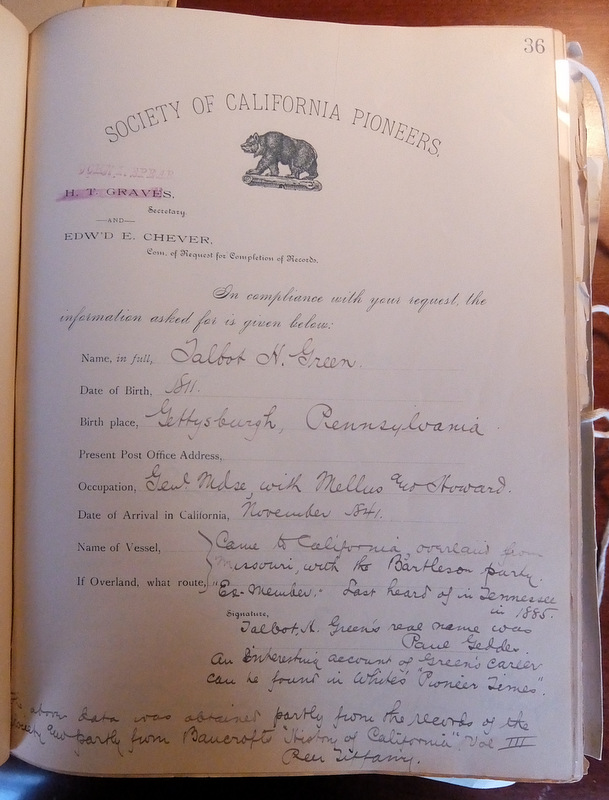 36
SOCIETY OF CALIFORNIA PIONEERS.
H. T. GRAVES,
Secretary
—AND—
EDW'D E. CHEVER,
Com. of Request for Completion of Records.
In compliance with your request, the
information asked for is given below:
Name, in full, Talbot H. Green.
Date of Birth, 1811.
Birth place, Gettysburgh, Pennsylvania
Present Post Office Address,
Occupation, Genl Mdse, with Mellus and Howard.
Date of Arrival in California, November 1841.
Name of Vessel, Came to California, overland from
Missouri, with the Bartleson party.
If Overland, what route, Ex-Member.- Last heard of in Tennessee
in 1885.
Signature,
Talbot H. Green's real name was
Paul Geddes.
An interesting account of Green's career
can be found in White's "Pioneer Times".
The above data was obtained partly from the records of the
Society and partly from Bancroft's "History of California", Vol III
Per Tiffany.